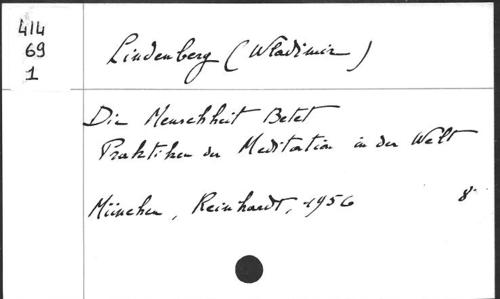 414
69
1
Lindenberg (Wladimir)
Die Menschheit Betet
Praktiken der Meditation in der Welt
München, Reinhardt, 1956 8°